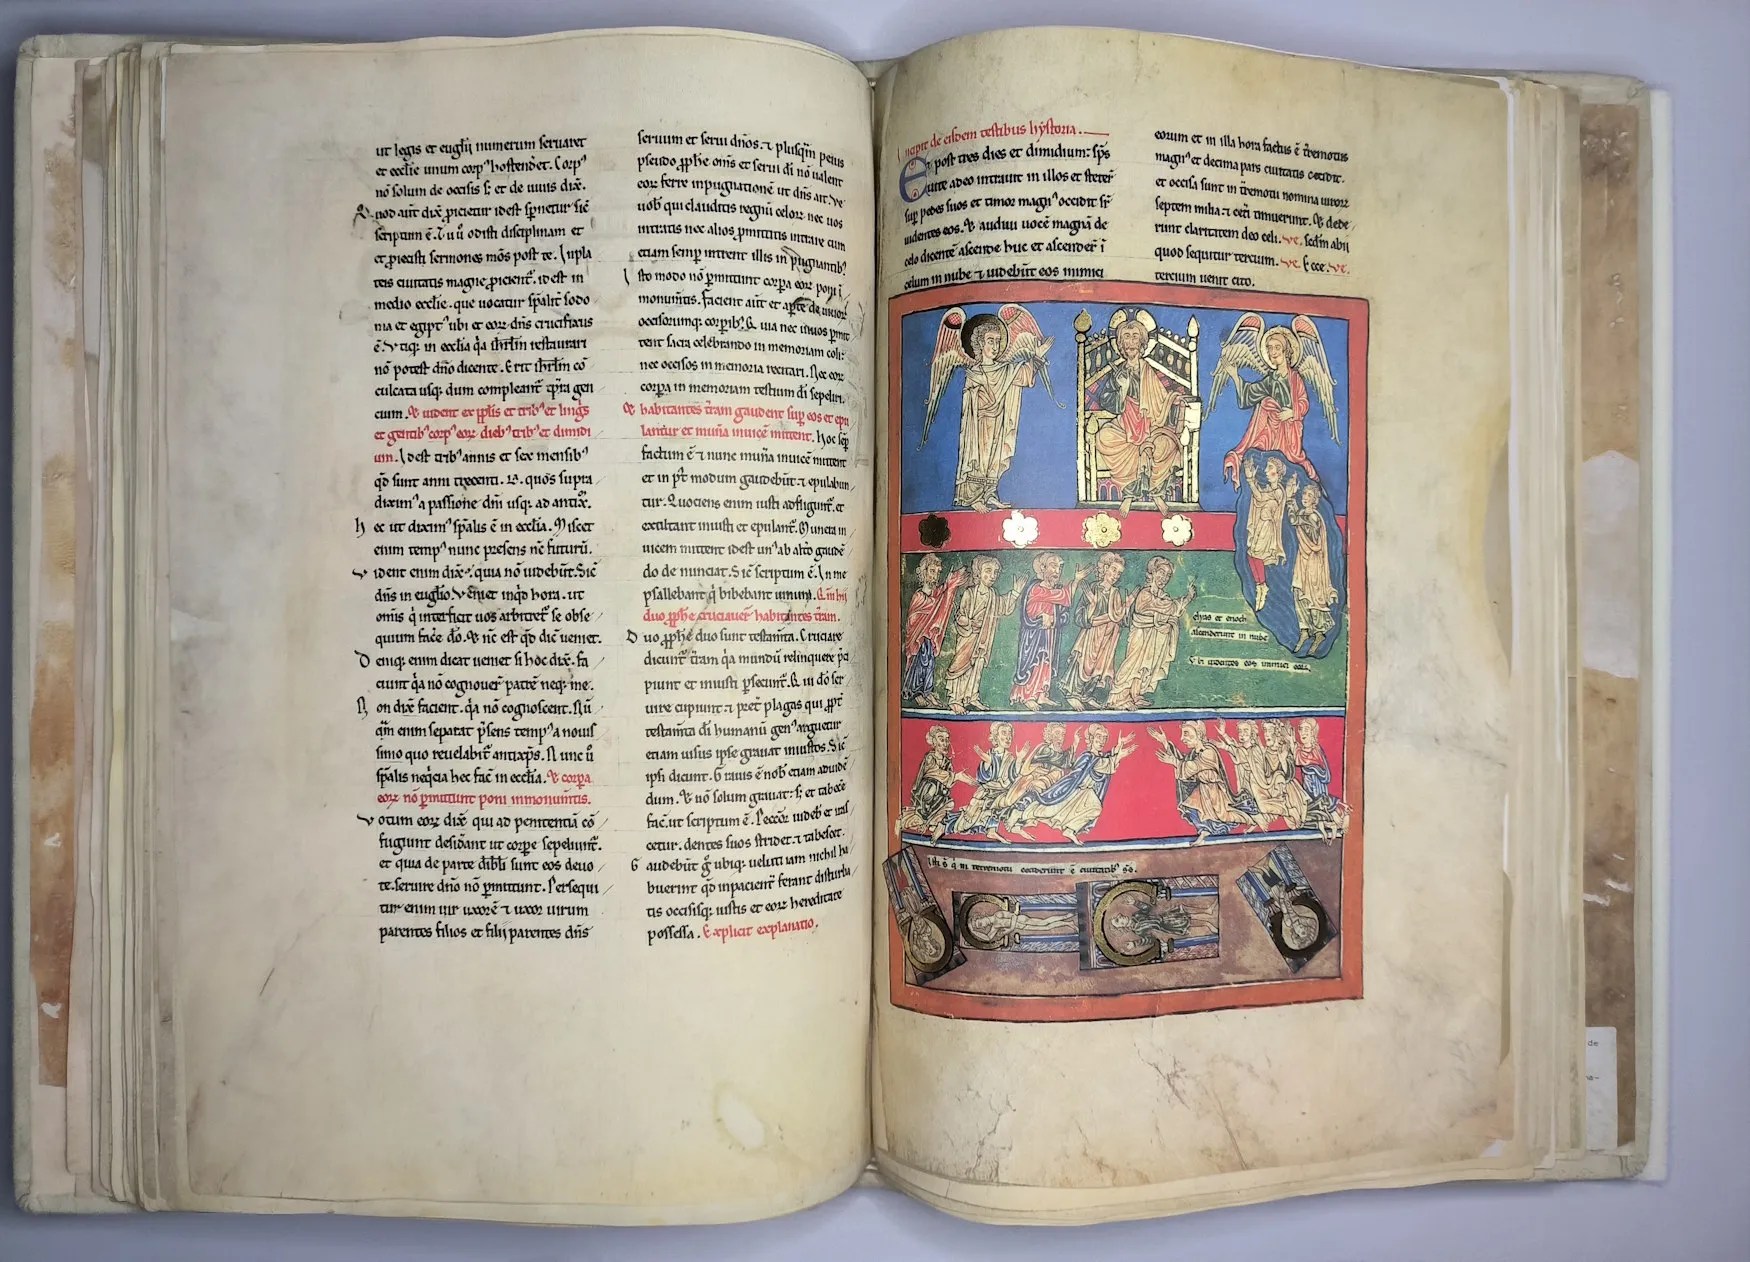 ut legis et euglii numerum seruaret
et ecclie unum corpꝰ hostenderet. Corpꝰ
nō solum de occisis sʒ et de uiuis dix̄.
Quod aūt dix̄ ꝓicietur idest sp̄netur sic̄
scriptum ē. Tu u̾o odisti disciplinam et
et ꝓiecisti sermones mōs post te. In pla
teis ciuitatis magne ꝓicient̄. idest in
medio ecclie. que uocatur sp̄alit̄ sodo
ma et egiptꝰ ubi et eoꝝ dn̄s crucifixus
ē. Vtiqꝫ in ecclia q̄a ihr̄lm restaurari
nō potest dn̄o dicente. Erit ihr̄lm cō
culcata usqꝫ dum compleant̄ tp̄ra gen
cium. Et uident ex pp̄lis et tribꝰ et lingis
et gentibꝰ corpꝰ eoꝝ diebꝰ tribꝰ et dimidi
um. Idest tribꝰ annis et sex mensibꝰ
qd̄ sunt anni trecenti. L. quos supra
diximꝰ a passione dn̄i usqꝫ ad antix̄p̄.
hec ut diximꝰ sp̄alis ē in ecclia. Miscet
enim tempꝰ nunc presens nc̄ futurū.
Vident enim dix̄. quia nō uideb̄ūt. Sic̄
dn̄s in euglio. Veniet inq̄d hora. ut
omīs q̄ interficit uos arbitret̄ se obse
quium face̾ dō. Et nc̄ est qd̄ dic̄ ueniet.
Deniqꝫ enim dicat ueniet si hoc dix̄. fa
ciunt q̄a nō cognouer̄ patrē neqꝫ me.
Non dix̄ facient. q̄a nō cognoscent. Nū
q̄m enim separat p̄sens tempꝰ a nouis
simo quo reuelabit̄ antix̄p̄s. Nunc u̾o
sp̄alis neq̄cia hec fac̄ in ecclia. Et corpa
eoꝝ nō pmittunt poni inmonum̄tis.
Votum eoꝝ dix̄ qui ad penitentiā cō
fugiunt desid̾ant ut corpe sepeliunt̄.
et quia de parte diabli sunt eos deuo
te. seruire dn̄o nō pmittunt. Persequi
tur enim uir uxorē ⁊ uxor uirum
parentes filios et filii parentes dn̄s
seruum et serui dn̄os. ⁊ plusq̄m peius
pseudo ꝓph̄e omīs et serui di nō ualent
eoꝝ ferre inpugnationē ut dn̄s ait. Ve
uob̄ qui clauditis regnū celoꝝ. nec uos
intratis nec alios pmittitis intrare cum
etiam semp intrent illis inpugnantibꝰ
Isto modo nō pmittunt corpa eoꝝ poni ī
monum̄tis. Facient aūt et apte de uiuoꝝ
occisorumqꝫ corpibꝰ. Quia nec uiuos pmit
tent sacra celebrando in memoriam coli.
nec occisos in memoria recitari. Nec eoꝝ
corpa in memoriam testium di sepeliri.
Et habitantes t̄ram gaudent sup eos et epu
lantur et mun̄a inuicē mittent. hoc semp
factum ē ⁊ nunc mun̄a inuicē mittent
et in p̄t modum gaudeb̄ūt ⁊ epulabun
tur. Quociens enim iusti adfligunt̄. et
exultant iniusti et epulant̄. Munera in
uicem mittent idest unꝰ ab alt̾o gaudē
do de nunciat. Sic̄ scriptum ē. In me
psallebant q̄ bibebant uinum. Q̄m hii
duo ꝓph̄e cruciauer̄ habitantes t̄ram.
Duo ꝓph̄e duo sunt testam̄ta. Cruciare
dicunt̄ t̄ram q̄a mundū relinquere p̄ci
piunt et iniusti p̄secunt̄. Qui dō ser
uire cupiunt ⁊ p̄ret plagas qui ꝓpt̄
testam̄ta di humanū genꝰ arguetur
etiam uisus ipse grauat iniustos. Sic̄
ipsi dicunt. Grauis ē nob̄ etiam aduidē
dum. Et nō solum grauat: sʒ et tabesce̾
fac̄. ut scriptum ē. Peccōr uideb̄ et iras
cetur. dentes suos stridet. ⁊ tabescet.
Gaudeb̄ūt g̾ ubiqꝫ ueluti iam nichil ha
buerint qd̄ inpacient̄ ferant disturba
tis occisisqꝫ iustis et eoꝝ hereditate
possessa. Explicit explanatio.
Incipit de eisdem testibus hystoria.
Et post tres dies et dimidium: sp̄s
uite a deo intrauit in illos et steter̄
sup pedes suos et timor magnꝰ occidit sr̄
uidentes eos. Et audiui uocē magnā de
celo dicentē ascende huc et ascender̄ ī
celum in nube ⁊ uideb̄ūt eos inimici
eorum et in illa hora factus ē t̄remotus
magnꝰ et decima pars ciuitatis cecidit.
et occisa sunt in t̄remotu nomina uiroꝝ
septem milia ⁊ cet̾i timuerunt. Et dede
runt claritatem deo celi. ve. secdm abii
quod sequitur tercium. ve. Ecce. ve.
tercium uenit cito.
elyas et enoch
ascenderunt in nube
Vbi uidentes eos inimici eoꝝ.
in terremotu ceciderunt ē ciuitatibꝰ